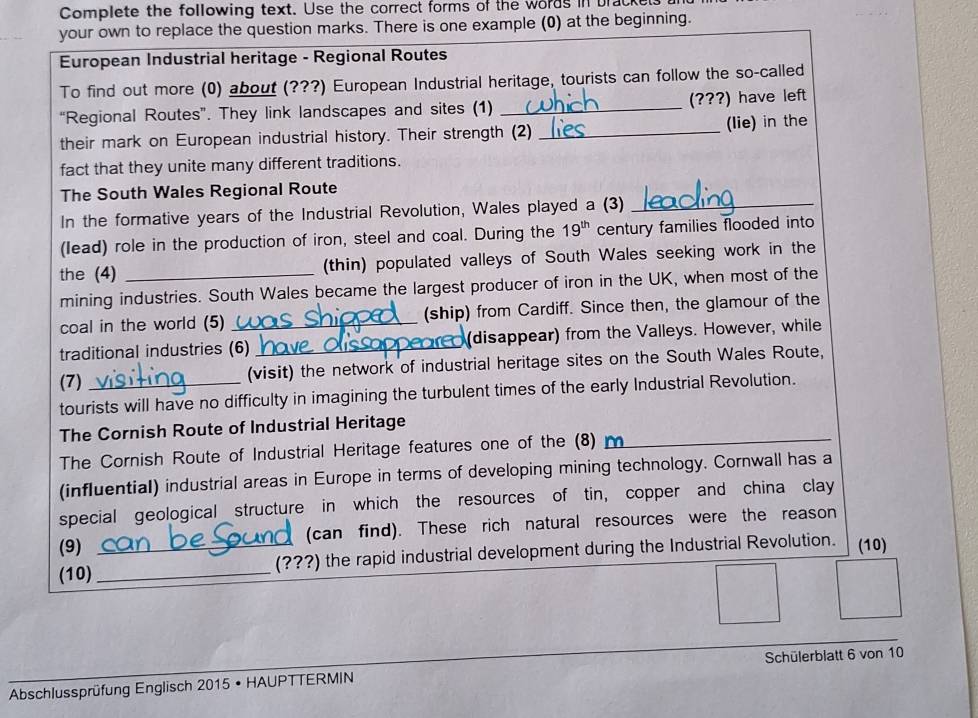 Complete the following text. Use the correct forms of the words in brackets
your own to replace the question marks. There is one example (0) at the beginning.
European Industrial heritage - Regional Routes
To find out more (0) about (???) European Industrial heritage, tourists can follow the so-called
"Regional Routes". They link landscapes and sites (1) which (???) have left
their mark on European industrial history. Their strength (2) lies (lie) in the
fact that they unite many different traditions.
The South Wales Regional Route
In the formative years of the Industrial Revolution, Wales played a (3) leading
(lead) role in the production of iron, steel and coal. During the 19th century families flooded into
the (4) ____ (thin) populated valleys of South Wales seeking work in the
mining industries. South Wales became the largest producer of iron in the UK, when most of the
coal in the world (5) was shipped (ship) from Cardiff. Since then, the glamour of the
traditional industries (6) have dissappeared (disappear) from the Valleys. However, while
(7) visiting (visit) the network of industrial heritage sites on the South Wales Route,
tourists will have no difficulty in imagining the turbulent times of the early Industrial Revolution.
The Cornish Route of Industrial Heritage
The Cornish Route of Industrial Heritage features one of the (8) m
(influential) industrial areas in Europe in terms of developing mining technology. Cornwall has a
special geological structure in which the resources of tin, copper and china clay
(9) can be sound (can find). These rich natural resources were the reason
(10) ____ (???) the rapid industrial development during the Industrial Revolution. (10)
Schülerblatt 6 von 10
Abschlussprüfung Englisch 2015 • HAUPTTERMIN